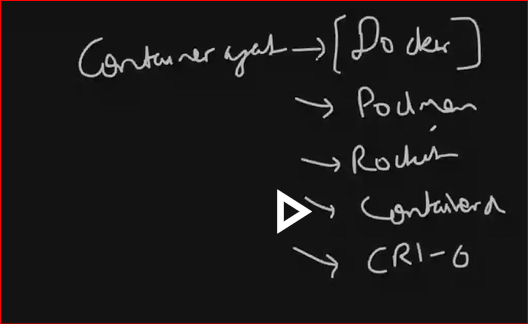 Container →[Docker]
→ Podman
→ Rocket
→ Containerd
→ CRI-O